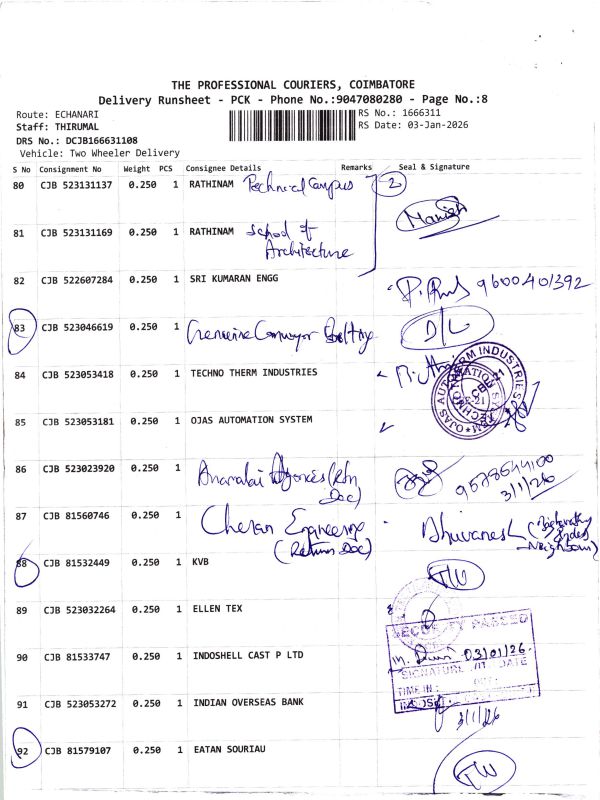 THE PROFESSIONAL COURIERS, COIMBATORE
Delivery Runsheet - PCK - Phone No.:9047080280 - Page No.:8
Route: ECHANARI
Staff: THIRUMAL
DRS No.: DCJB166631108
Vehicle: Two Wheeler Delivery
RS No.: 1666311
RS Date: 03-Jan-2026
S No Consignment No Weight PCS Consignee Details Remarks Seal & Signature
80 CJB 523131137 0.250 1 RATHINAM Technical Campus 2
Manish
81 CJB 523131169 0.250 1 RATHINAM School of
Architecture
82 CJB 522607284 0.250 1 SRI KUMARAN ENGG 9600401392
83 CJB 523046619 0.250 1 Genuine Conveyor Belting D/L
84 CJB 523053418 0.250 1 TECHNO THERM INDUSTRIES
OJAS AUTOMATION SYSTEM
TECHNO THERM INDUSTRIES
CBE-21
85 CJB 523053181 0.250 1 OJAS AUTOMATION SYSTEM
86 CJB 523023920 0.250 1 Annamalai Agencies (Rtn
Doc) 9578544100
3/1/26
87 CJB 81560746 0.250 1 Cheran Engineering
(Return Doc) Bhuvanesh
Neighbour)
88 CJB 81532449 0.250 1 KVB
89 CJB 523032264 0.250 1 ELLEN TEX
SECURITY PASSED
90 CJB 81533747 0.250 1 INDOSHELL CAST P LTD
03/01/26.
SIGNATURE DATE
TIME IN: OUT:
91 CJB 523053272 0.250 1 INDIAN OVERSEAS BANK
3/1/26
92 CJB 81579107 0.250 1 EATAN SOURIAU